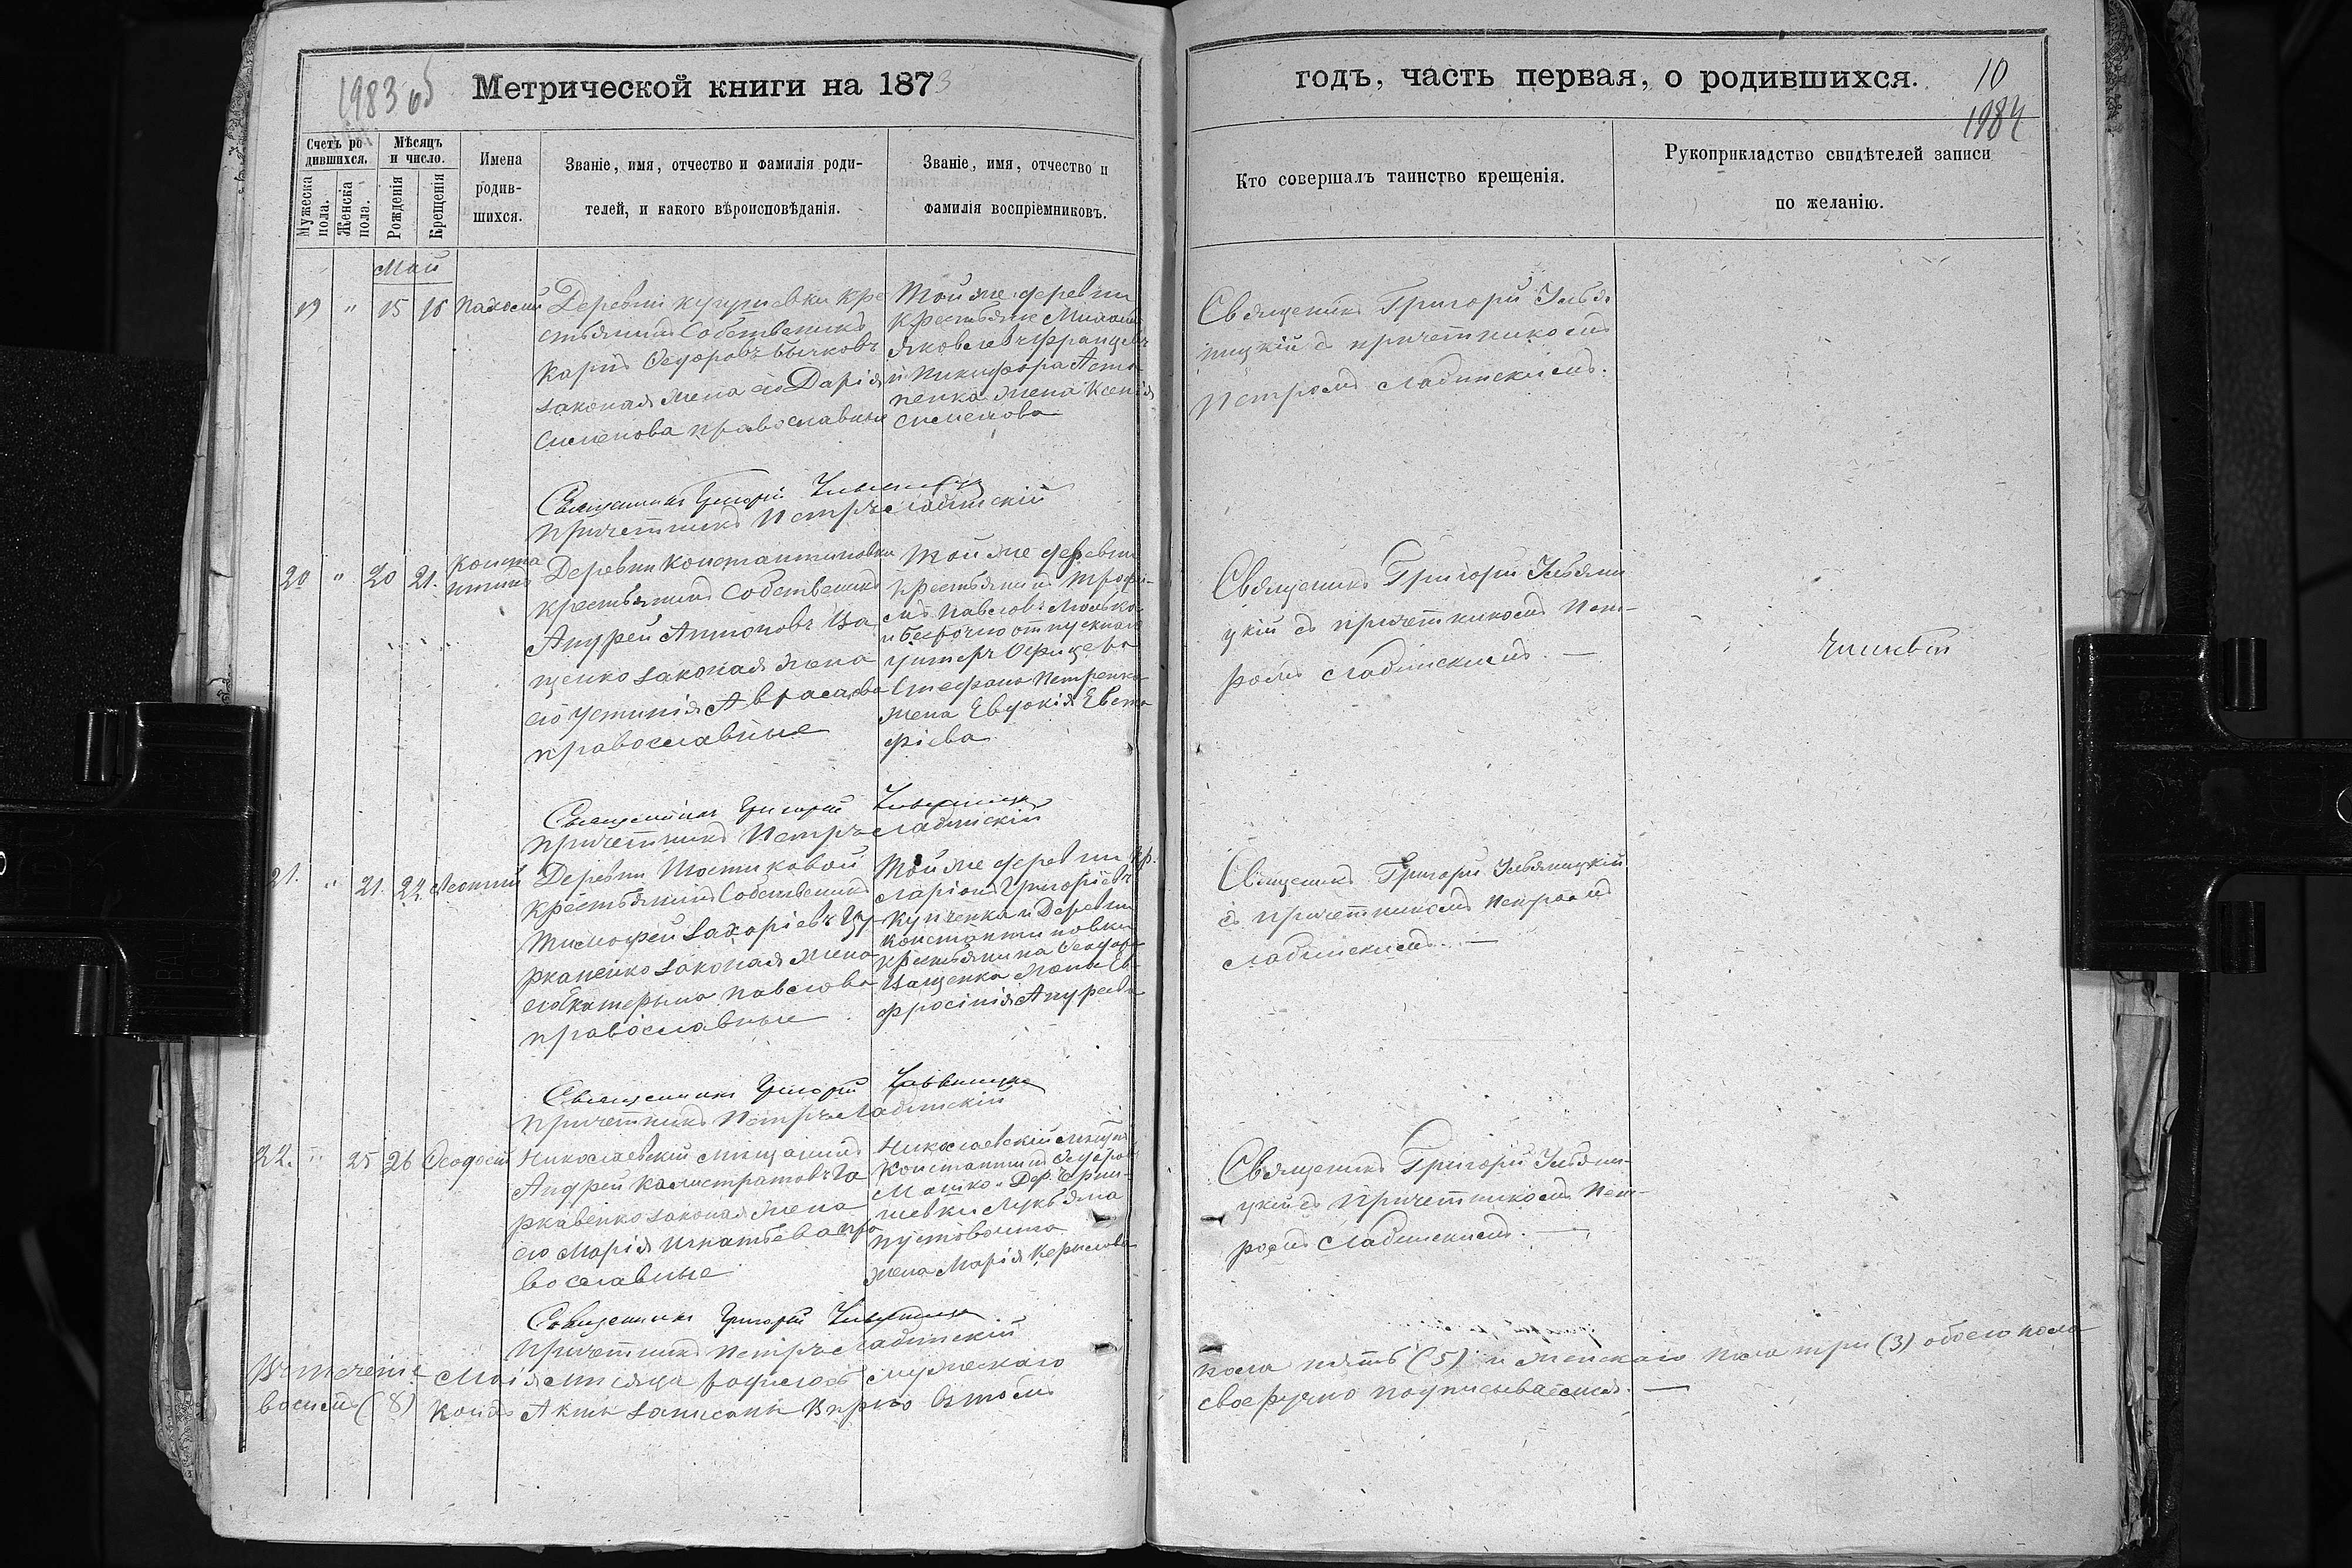 1983 об
Метрической книги на 1873
годъ, часть первая, о родившихся.
10
1984
Счетъ ро
дившихся.
Мужеска
пола.
Женска
пола.
Мѣсяцъ
и число.
Рожденія
Крещенія
Имена
родив-
шихся.
Званіе, имя, отчество и фамилія роди-
телей, и какого вѣроисповѣданія.
Званіе, имя, отчество и
фамилія воспріемниковъ.
Кто совершалъ таинство крещенія.
Рукоприкладство свидѣтелей записи
по желанію.
Май
19 " 15 16 Пахомій
Деревни Кугушевки кре
стьянинъ Собственикъ
Карпъ Ѳедоровъ Бычковъ
законая жена его Дарія
Сименова православныя
Той же деревни
Крестьяне
Яковлевъ
и Никифора Асто
пенка жена Ксенія
Сименова
Священикъ Григорій
ницкій съ причетникомъ
Петромъ Сладинскимъ.
Священникъ Григорій
Причетникъ Петръ Сладинскій
20 " 20 21. Конста
нтинъ
Деревни Константиновки
крестьянинъ Собственикъ
Андрей Антоновъ Ва
щенко законая жена
его Устинія
православные
Той же деревни
крестьянинъ Трофи-
мъ Павловъ
и безсрочно отпускнаго
Унтеръ Офицера
Стефана Петренка
жена Евдокія Евста
фіева
Священикъ Григорій
цкій съ причетникомъ Пет-
ромъ Сладинскимъ. —
Священникъ Григорій
Причетникъ Петръ Сладинскій
21. " 21. 22. Леонтій
Деревни Постиковой
крестьянинъ Собственикъ
Тимофей Захаріевъ Цу-
рканенко законая жена
его Екатерына Павлова
православные
Той же деревни кр.
Ларіонъ Григоріевъ
Купченка и Деревни
Константиновки
крестьянина Ѳеодора
Ващенка жена Ев-
фросинія Андреева
Священикъ Григорій
съ причетникомъ Петромъ
Сладинскимъ. —
Священникъ Григорій
Причетникъ Петръ Сладинскій
22. " 25 26 Ѳеодосій
Николаевскій мѣщанинъ
Андрей Калистратовъ Га
ркавенко законая жена
его Марія Игнатьева пра
вославные
Николаевскій мѣщан
Константинъ Ѳедоровъ
Дер.
шевки Лукьяна
Пустовойта
жена Марія Керилова
Священикъ Григорій
цкій съ Причетникомъ Пет-
ромъ Сладинскимъ. —
Священникъ Григорій
Причетникъ Петръ Сладинскій
Втеченіе Маія мисяца родилось мужескаго
пола пять (5) и женскаго пола три (3) обоего пола
восимъ (8) коихъ Акты записаны вѣрно в томъ
своеручно подписываемся. —